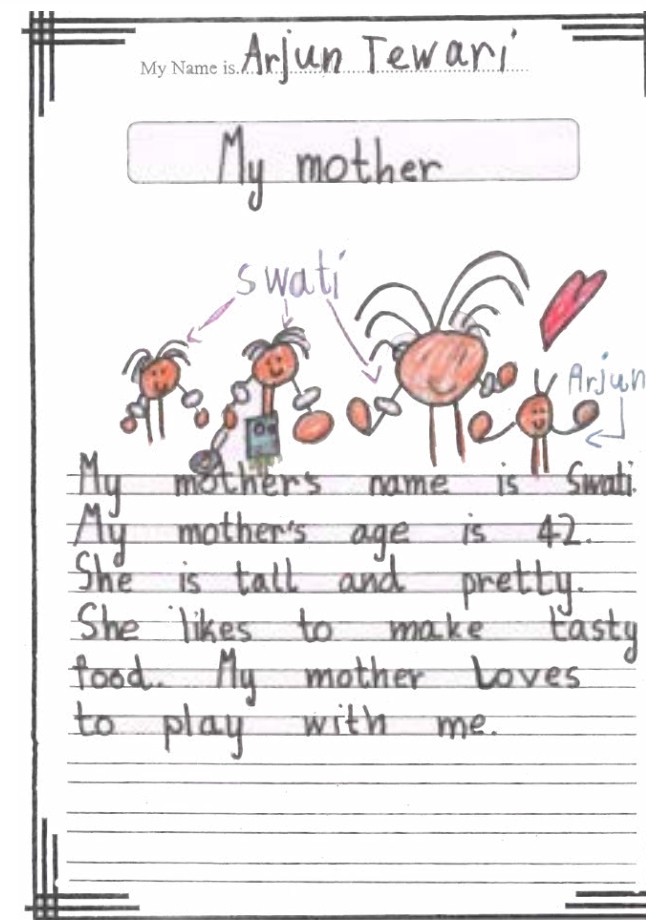 My Name is Arjun Tewari
My mother
Swati
Arjun
My mothers name is Swati.
My mother's age is 42.
She is tall and pretty.
She likes to make tasty
food. My mother Loves
to play with me.